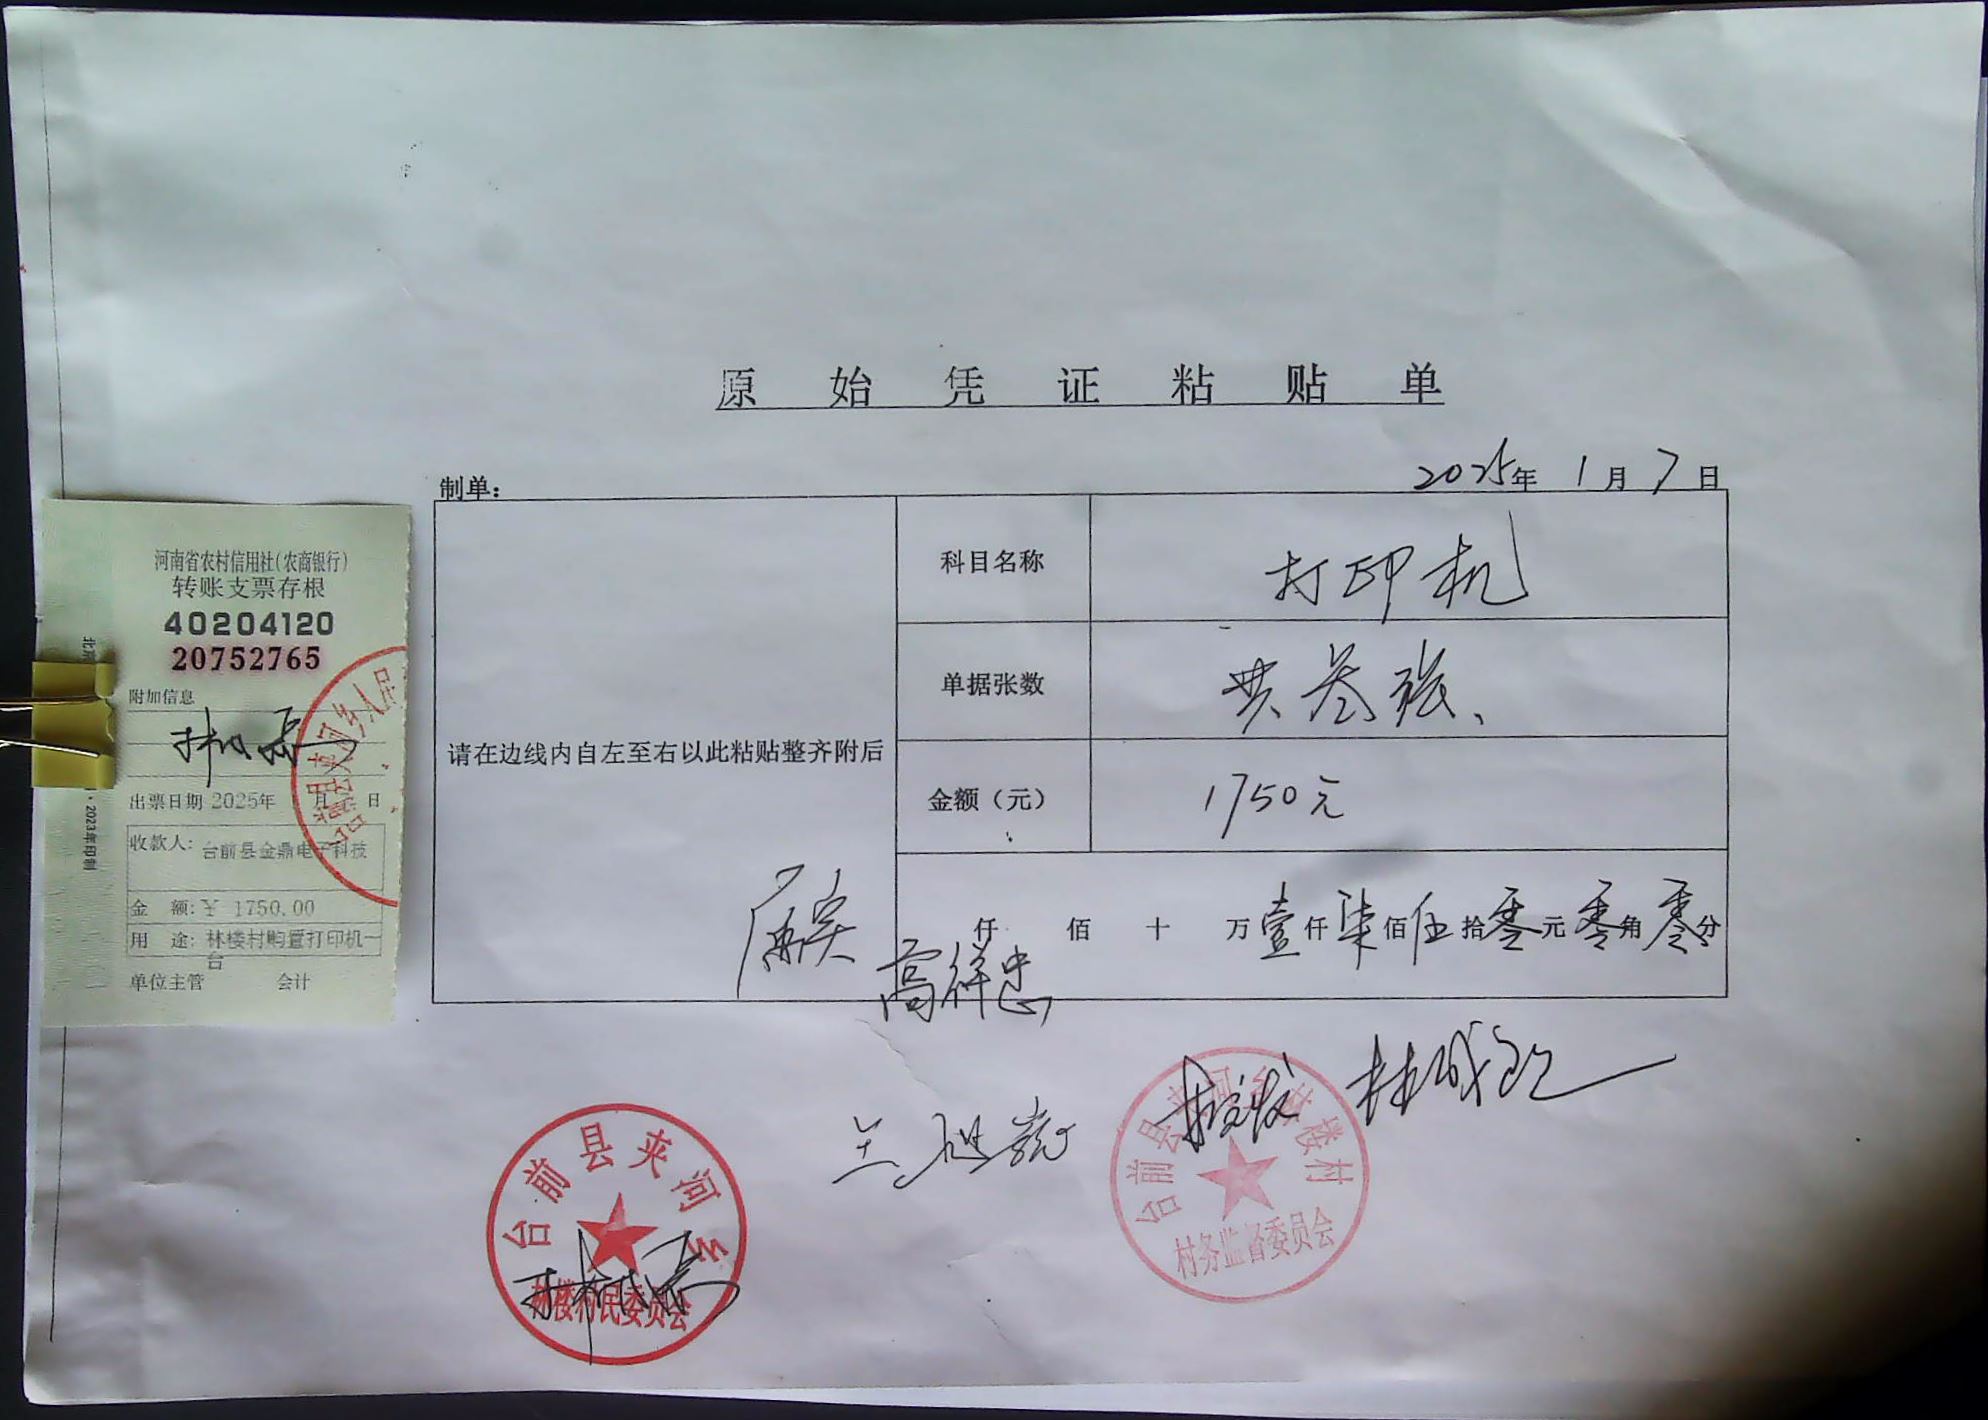 原始凭证粘贴单
制单：
2025年1月7日
科目名称 打印机
单据张数 共叁张、
请在边线内自左至右以此粘贴整齐附后
金额（元） 1750元
仟 佰 十 万壹仟柒佰伍拾零元零角零分
属实
高祥忠
台前县夹河乡
林楼村民委员会
台前县夹河乡林楼村
村务监督委员会
河南省农村信用社(农商银行)
转账支票存根
40204120
20752765
附加信息
出票日期 2025年 月 日
收款人: 台前县金鼎电子科技
金 额:￥ 1750.00
用 途: 林楼村购置打印机一
台
单位主管 会计
2023年印制